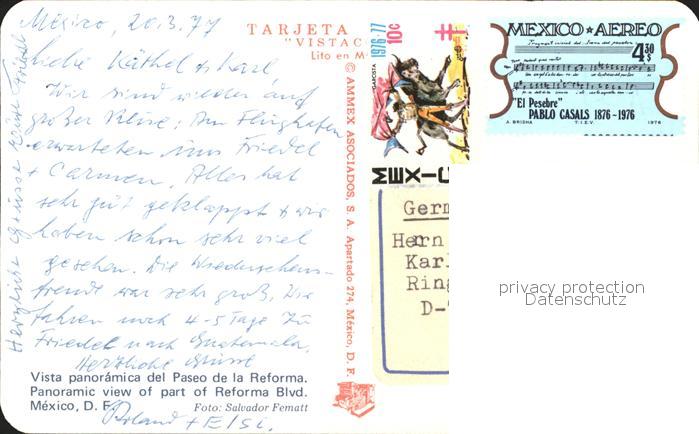 México, 20.3.77
Liebe Käthel + Karl
Wir sind wieder auf
großer Reise. Am Flughafen
erwarteten uns Friedel
+ Carmen. Alles hat
sehr gut geklappt + wir
haben schon sehr viel
gesehen. Die Wiedersehens-
freude war sehr groß. Wir
fahren noch 4-5 Tage zu
Friedel nach Guatemala.
Herzliche Grüsse
Roland +
Herzliche Grüsse Friedel
Vista panorámica del Paseo de la Reforma.
Panoramic view of part of Reforma Blvd.
México, D. F.
Foto: Salvador Fematt
TARJETA
"VISTAC
Lito en M
© AMMEX ASOCIADOS, S. A. Apartado 274, México, D. F.
1976-77
10c
GARCOSTA
MEXIC
MEXICO ★ AEREO
4.30
$
"El Pesebre"
PABLO CASALS 1876-1976
T.I.E.V.
1976
Germ
Herrn
Karl
Ring
D-
privacy protection
Datenschutz